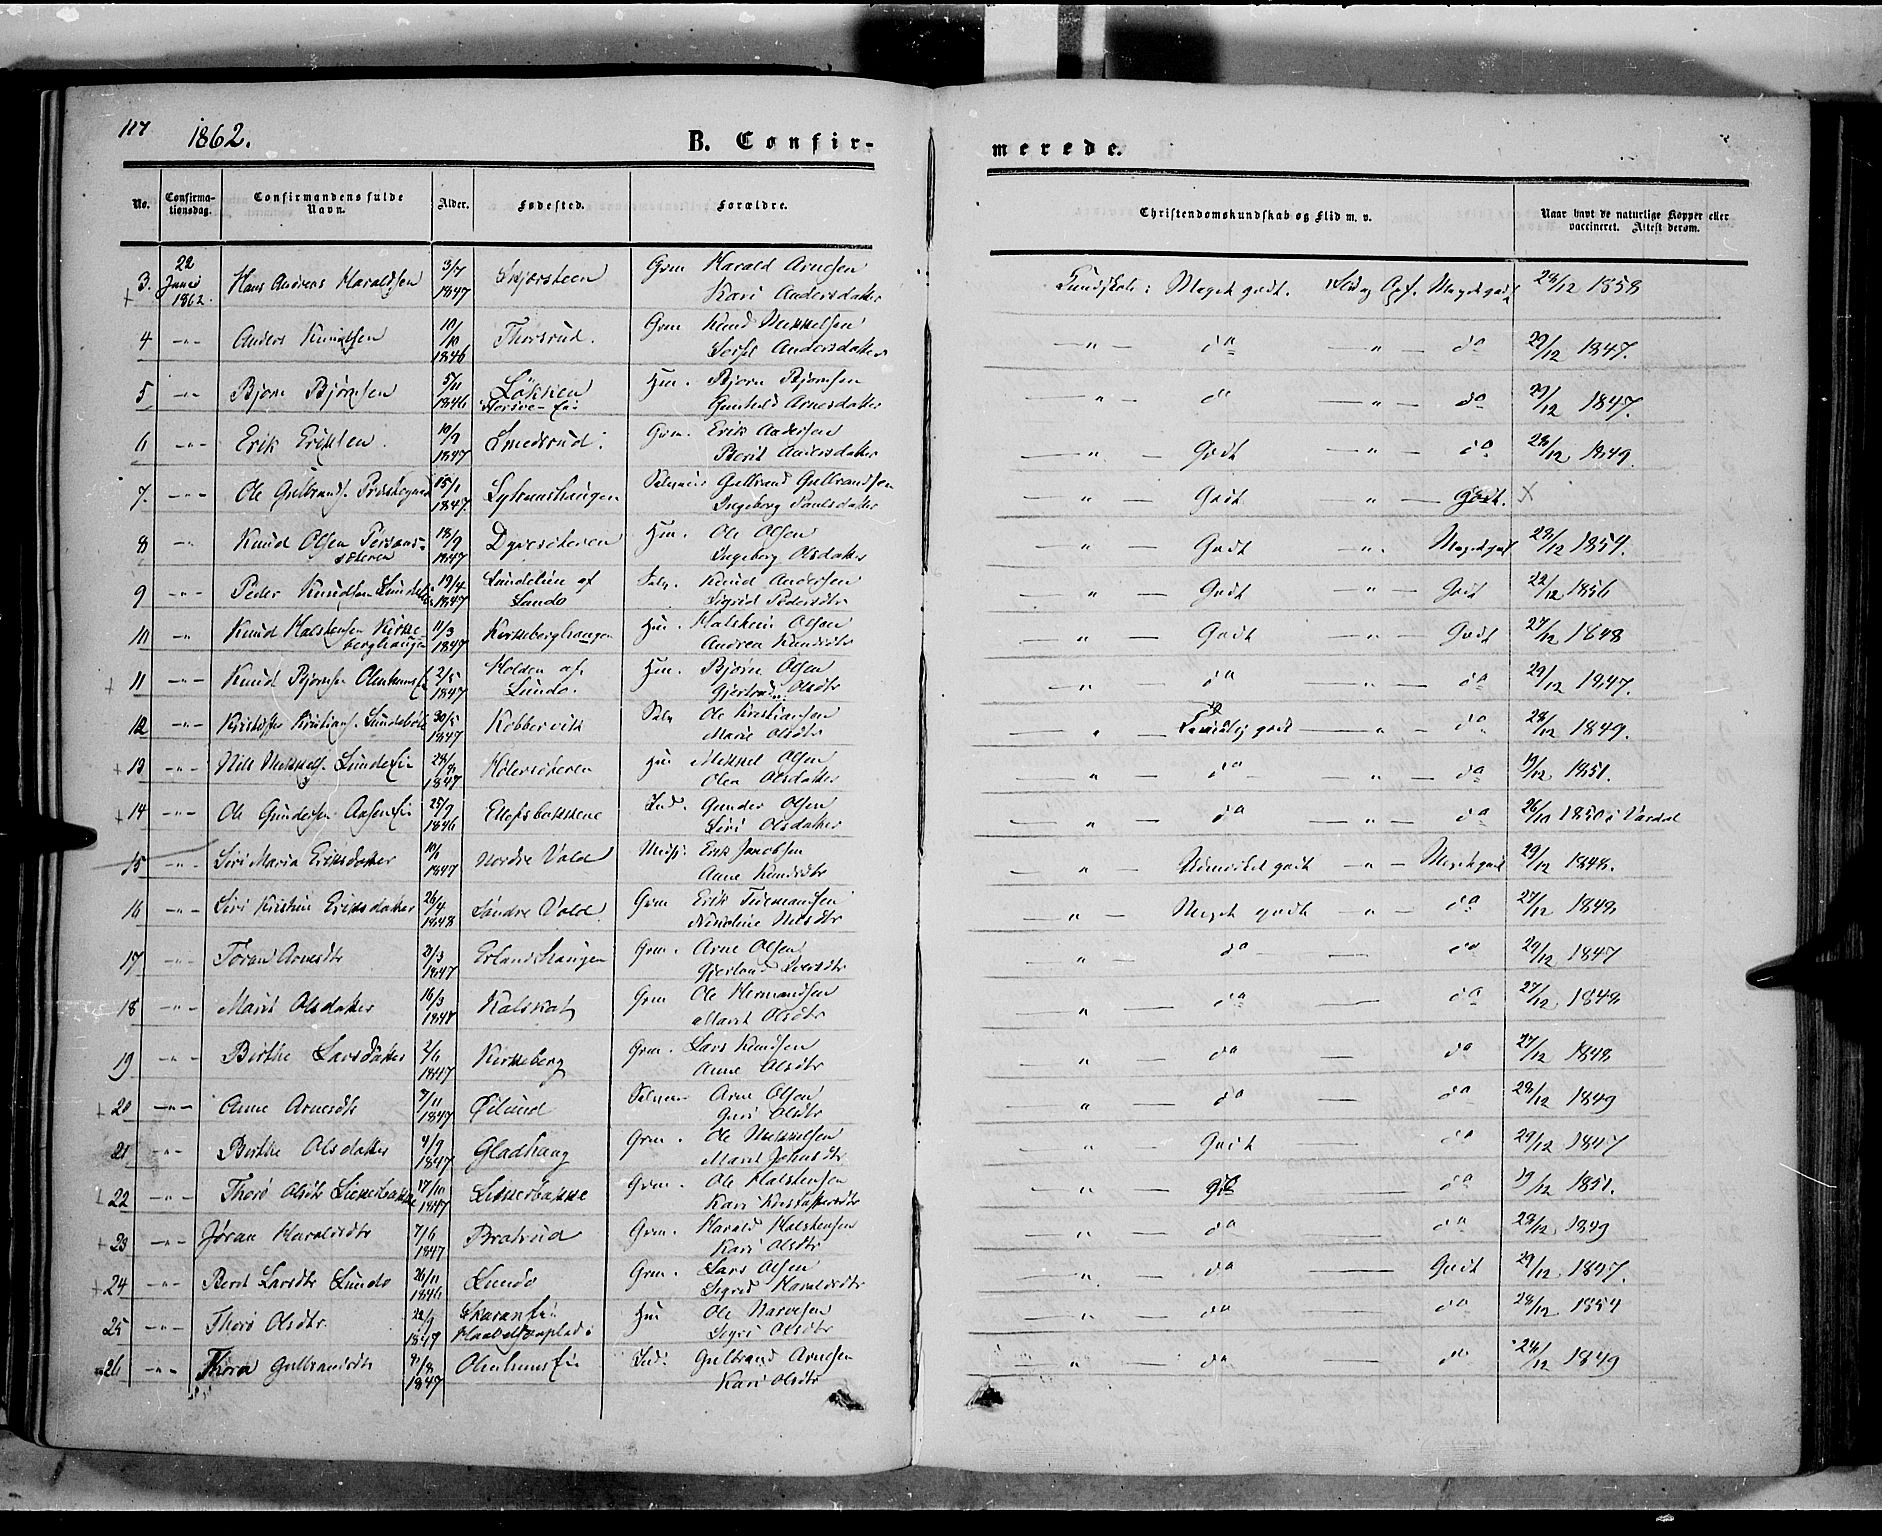 117 1862. B. Confir- merede.
No. Confirma-tionsdag. Confirmandens fulde Navn. Alder. Fødested. Forældre. Christendomskundskab og Flid m. v. Naar havt de naturlige Kopper eller vaccineret. Attest derom.
3. 22 Juni 1862. Hans Andreas Haraldsen 3/7 1847 Skjørsteen Grm Harald Arnesen Kari Andersdatter Kundskab: Meget godt. Flid og Opf. Meget godt 28/12 1858
4 -"- Anders Knudsen 10/10 1846 Thorsrud. Grm Knud Mikkelsen Andersdatter -"- do -"- do 29/12 1847.
5 -"- Bjørn Bjørnsen 5/11 1846 Løkken Hm. Bjørn Bjørnsen Gunhild Arnesdatter -"- do -"- do 29/12 1847.
6 -"- Erik Eriksen 10/9 1847 Smedsrud. Grm. Erik Andersen Berit Andersdatter -"- Godt -"- do 28/12 1849.
7. -"- Ole Gulbrands. 15/1 1847. Gulbrand Gulbrandsen Ingeborg Paulsdatter " Godt " Godt. X
8 -"- Knud Olsen 18/9 1847 Dyresæteren Hm. Ole Olsen Ingeborg Olsdatter " Godt -"- Meget godt 29/12 1854.
9 -"- Peder Knudsen 19/4 1847 Lundelien af Lundo Knud Andersen Sigrid Pedersdtr " Godt -"- Godt 22/12 1856
10 -"- Knud Halstensen Kirke-berghaugen 11/3 1847 Kirkeberghaugen Hm. Halstein Olsen Andrea Knudsdtr " Godt " Godt 27/12 1848
11 -"- Knud Bjørnsen 2/5 1847 Holden af Lundo. Hm. Bjørn Olsen Gjertrud Olsdtr " do " do 29/12 1847.
12 -"- Kristian. 30/5 1847 Kobbervik Ole Kristiansen Marie Olsdtr " Temmelig godt -"- do 28/12 1849.
13 -"- Nils Mikkels. 28/8 1847 Hm Mikkel Olsen Olea Olsdatter " do " do 19/12 1851.
14 -"- Ole Gundersen 25/9 1846 Ellefsbakkene Ind. Gunder Olsen Siri Olsdatter " do do 26/10 1850 i Vardal
15 -"- Siri Maria Eriksdatter 10/1 1847 Nordre Vold Erik Jacobsen Anne Knudsdtr " Udmærket godt -"- Meget godt 29/12 1848.
16 -"- Siri Kristine Eriksdatter 26/4 1848 Søndre Vold Grm Erik Nilsdtr " Meget godt -"- do 27/12 1848
17 -"- Tøran Arnesdtr 21/3 1847 Erlandshaugen Grm. Arne Olsen " do do 29/12 1847
18 -"- Marit Olsdatter 16/3 1848 Kalskat Grm Ole Hermandsen Marit Olsdtr " do do 27/12 1848
19 -"- Birthe Larsdatter 2/6 1847 Kirkeberg Grm. Lars Knudsen Anne Olsdtr " do do 27/12 1848
20 -"- Anne Arnesdtr 7/11 1847 Øilund Arne Olsen Guri Olsdtr " do do 28/12 1849
21 -"- Birthe Olsdatter 4/9 1847 Gladhaug Grm. Ole Mikkelsen Marit Johnsdtr " Godt do 29/12 1847
22 -"- Thorø Olsdtr 17/10 1847 Grm. Ole Halstensen Kari Kristoffersdtr " do do 19/12 1851.
23 -"- Jøran Haraldsdtr 7/6 1847 Bratrud Grm. Harald Halstensen Kari Olsdtr " do do 28/12 1849
24 -"- Berit Larsdtr Lundo 26/11 1846 Lundo Grm. Lars Olsen Sigrid Haraldsdtr " do Godt 29/12 1847.
25 -"- Thorø Olsdtr. 22/9 1847 Hm Ole Sigri Olsdtr " do do 28/12 1854
26 -"- Thora Gulbrandsdtr 8 1847 Ind. Gulbrand Arnesen Kari Olsdtr " do do 24/12 1849